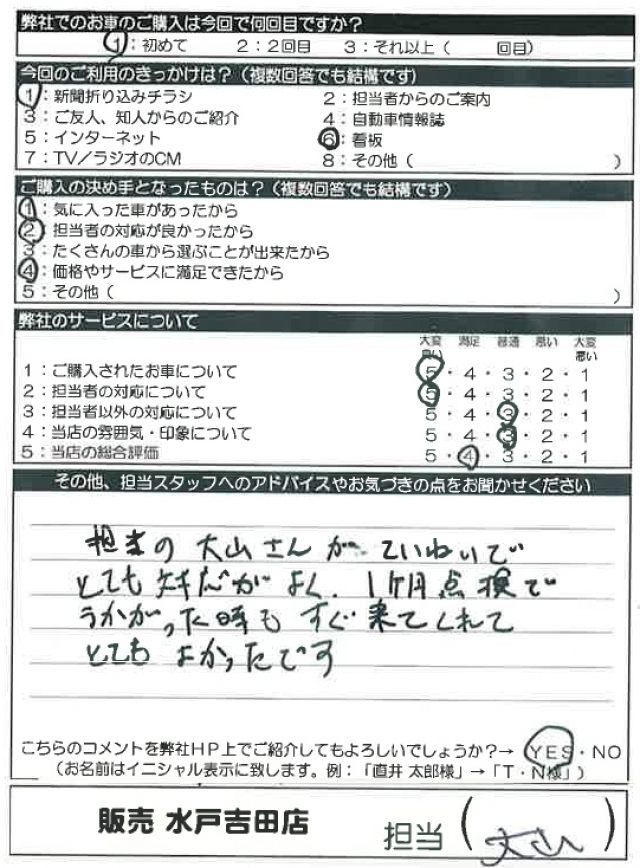 弊社でのお車のご購入は今回で何回目ですか?
1:初めて 2:2回目 3:それ以上( 回目)
今回のご利用のきっかけは?(複数回答でも結構です)
1:新聞折り込みチラシ 2:担当者からのご案内
3:ご友人、知人からのご紹介 4:自動車情報誌
5:インターネット 6:看板
7:TV/ラジオのCM 8:その他( )
ご購入の決め手となったものは?(複数回答でも結構です)
1:気に入った車があったから
2:担当者の対応が良かったから
3:たくさんの車から選ぶことが出来たから
4:価格やサービスに満足できたから
5:その他( )
弊社のサービスについて
大変良い 満足 普通 悪い 大変悪い
1:ご購入されたお車について 5・4・3・2・1
2:担当者の対応について 5・4・3・2・1
3:担当者以外の対応について 5・4・3・2・1
4:当店の雰囲気・印象について 5・4・3・2・1
5:当店の総合評価 5・4・3・2・1
その他、担当スタッフへのアドバイスやお気づきの点をお聞かせください
担当の大山さんが ていねいで
とても対応がよく、1ヶ月点検で
うかがった時も すぐ来てくれて
とても よかったです
こちらのコメントを弊社HP上でご紹介してもよろしいでしょうか?→ YES・NO
(お名前はイニシャル表示に致します。例:「直井 太郎様」→「T・N様」)
販売 水戸吉田店 担当(大山)